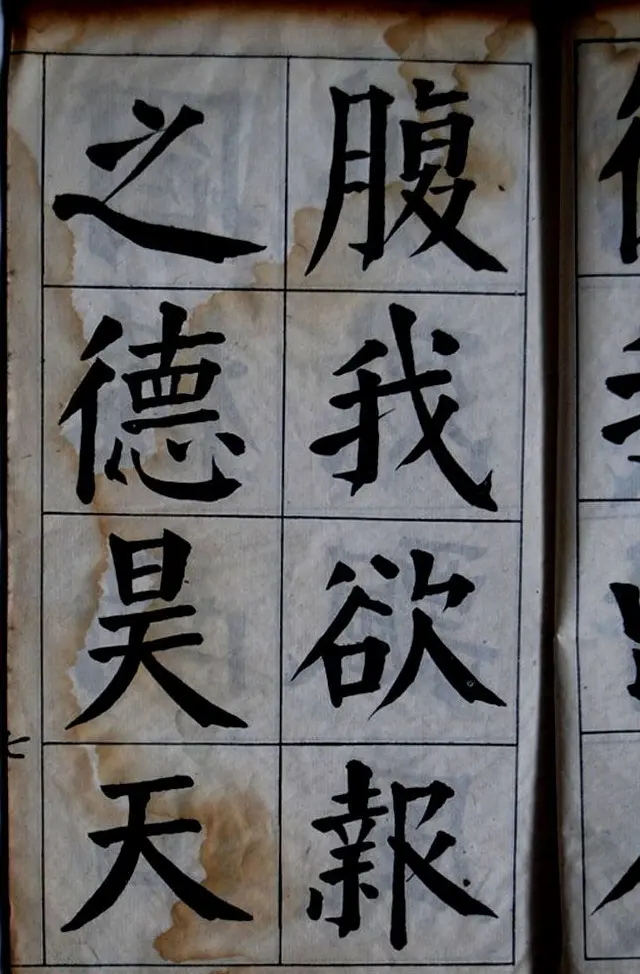 腹我欲報
之德昊天